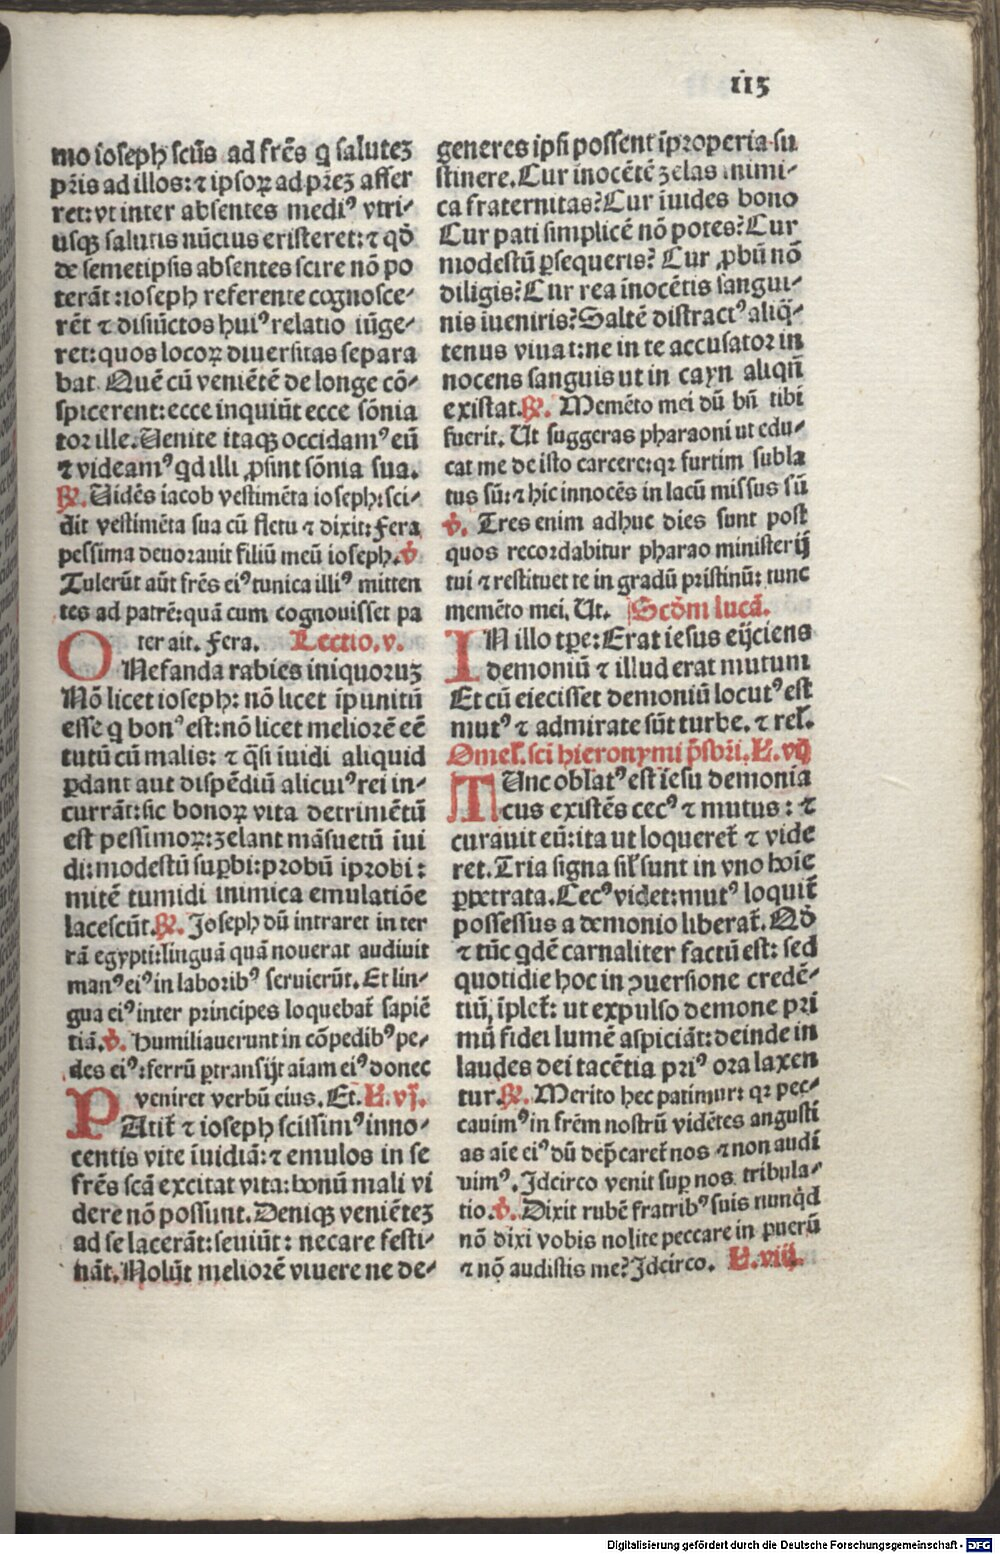 115
mo ioseph scũs ad frẽs q̃ salutez
p̃ris ad illos: ⁊ ipsoꝝ ad p̃rez affer
ret: vt inter absentes mediꝰ vtri⸗
usqꝫ salutis nũcius existeret: ⁊ qd̃
de semetipsis absentes scire nõ po
terãt: ioseph referente cognosce⸗
rẽt ⁊ disiũctos huiꝰ relatio iũge⸗
ret: quos locoꝝ diuersitas separa
bat. Quẽ cũ veniẽtẽ de longe cõ⸗
spicerent: ecce inquiũt ecce sõnia
tor ille. Venite itaqꝫ occidamꝰ eũ
⁊ videamꝰ qd illi ꝓsint sõnia sua.
℟. Uidẽs iacob vestimẽta ioseph: sci⸗
dit vestimẽta sua cũ fletu ⁊ dixit: Fera
pessima deuorauit filiũ meũ ioseph. ℣
Tulerũt aũt frẽs eiꝰ tunica illiꝰ mitten
tes ad patrẽ: quã cum cognouisset pa
ter ait. Fera. Lectio. v.
O Nefanda rabies iniquoruz
Nõ licet ioseph: nõ licet ĩpunitũ
esse q̃ bonꝰ est: nõ licet meliorẽ eẽ
tutũ cũ malis: ⁊ q̃si ĩuidi aliquid
ꝑdant aut dispẽdiũ alicuiꝰ rei in⸗
currãt: sic bonoꝝ vita detrimẽtũ
est pessimoꝝ: zelant mãsuetũ iui
di: modestũ suꝑbi: probũ iprobi:
mitẽ tumidi inimica emulatiõe
lacescũt. ℟. Joseph dũ intraret in ter
rã egypti: linguã quã nouerat audiuit
manꝰ eiꝰ in laboribꝰ seruierũt. Et lin⸗
gua eiꝰ inter principes loquebat᷑ sapiẽ
tiã. ℣. Humiliauerunt in cõpedibꝰ pe⸗
des eiꝰ: ferrũ ꝑtransijt aiam eiꝰ donec
veniret verbũ eius. Et. L. vj.
PAtit᷑ ⁊ ioseph scissimꝰ inno⸗
centis vite ĩuidiã: ⁊ emulos in se
frẽs scã excitat vita: bonũ mali vi
dere nõ possunt. Deniqꝫ veniẽtez
ad se lacerãt: seuiũt: necare festi⸗
nãt. Nolũt meliorẽ viuere ne de⸗
generes ipsi possent ĩproperia su
stinere. Cur inocẽtẽ zelas inimi⸗
ca fraternitas? Cur ĩuides bono
Cur pati simplicẽ nõ potes? Cur
modestũ ꝑsequeris? Cur ꝓbũ nõ
diligis? Cur rea inocẽtis sangui⸗
nis ĩueniris? Saltẽ distractꝰ aliq̃⸗
tenus viuat: ne in te accusator in
nocens sanguis ut in cayn aliqñ
existat. ℟. Memẽto mei dũ bñ tibi
fuerit. Ut suggeras pharaoni ut edu⸗
cat me de isto carcere: qꝛ furtim subla
tus sũ: ⁊ hic innocẽs in lacũ missus sũ
℣. Tres enim adhuc dies sunt post
quos recordabitur pharao ministerij
tui ⁊ restituet te in gradũ pristinũ: tunc
memẽto mei. Ut. Scđm lucã.
IN illo tpe: Erat iesus eijciens
demoniũ ⁊ illud erat mutum
Et cũ eiecisset demoniũ locutꝰ est
mutꝰ ⁊ admirate sũt turbe. ⁊ rel᷑.
Omel᷑. sci hieronymi p̃sbri. L. vij
TUnc oblatꝰ est iesu demonia
cus existẽs cecꝰ ⁊ mutus: ⁊
curauit eũ: ita ut loqueret᷑ ⁊ vide
ret. Tria signa sil᷑ sunt in vno hoĩe
ꝑpetrata. Cecꝰ videt: mutꝰ loquit᷑
possessus a demonio liberat᷑. Qđ
⁊ tũc qdẽ carnaliter factũ est: sed
quotidie hoc in ꝯuersione credẽ⸗
tiũ ĩplet᷑: ut expulso demone pri
mũ fidei lumẽ aspiciãt: deinde in
laudes dei tacẽtia priꝰ ora laxen
tur. ℟. Merito hec patimur: qꝛ pec⸗
cauimꝰ in frẽm nostrũ vidẽtes angusti
as aĩe eiꝰ dũ dep̃caret᷑ nos ⁊ non audi
uimꝰ. Jdcirco venit suꝑ nos tribula⸗
tio. ℣. Dixit rubẽ fratribꝰ suis nunqd
nõ dixi vobis nolite peccare in puerũ
⁊ nõ audistis me? Jdcirco. L. viij.
Digitalisierung gefördert durch die Deutsche Forschungsgemeinschaft - DFG